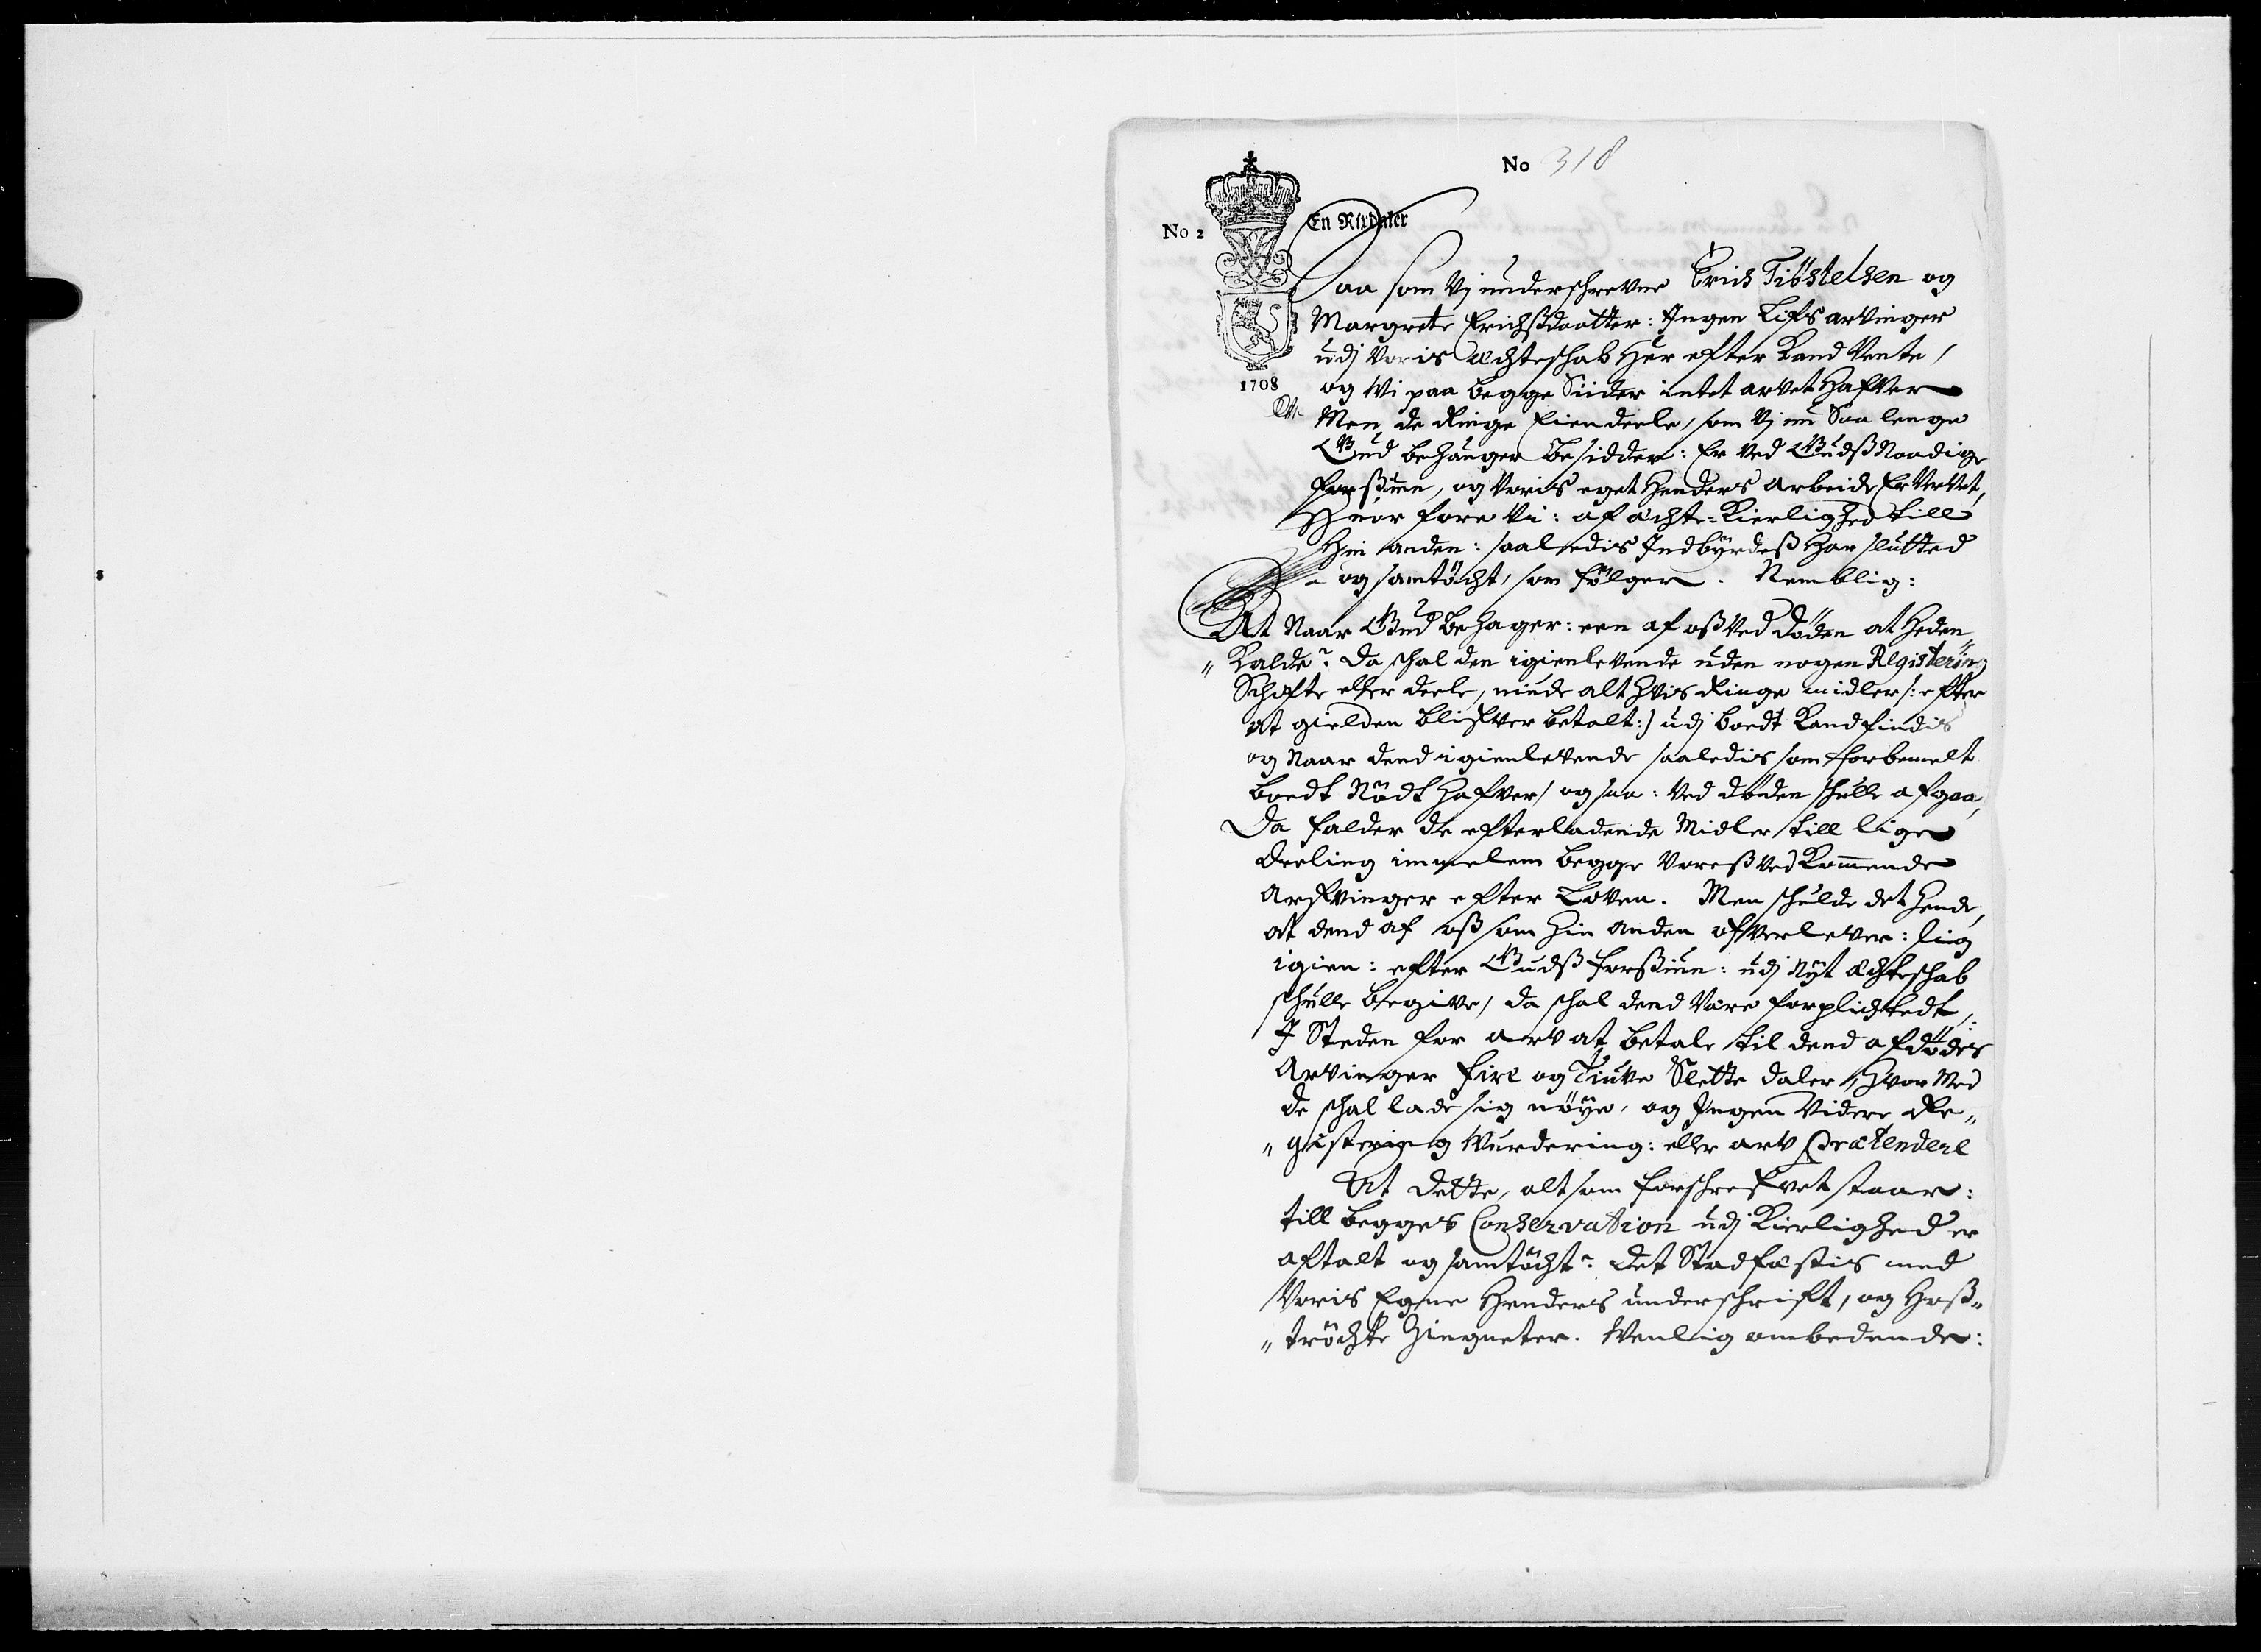 No 318
No 2
En Rixdaler
1708
Saa som Vj underschrevne Erich Tibstelsen og
Margrete Erichsdaatter: Ingen Lifs arvinger
udj Voris Ächteschab Her efter Kand Vente,
og Wi paa begge Siider intet arvet Hafver
Men de Ringe Eiendeele, som Vj nu Saa lenge
Gud behauger besidder: Er Ved Gudß Naadige
forßiun, og Voris eget Henders arbeide Erververt,
Huor fore Vi: af ächte-Kierlighed till
Hin anden: saaledis Indbÿrdeß Har slutted
og samtöcht, som fölger. Nemblig:
At Naar Gud behager: een af oß Ved döden at Heden„
„Kalde: da schal den igienlevende uden nogen Registering
Schifte eller deele, niude alt Hvis Ringe midler /: efter
at gielden blifver betalt:/ udj boedt Kand findis
og Naar dend igienlevende saaledis som forbemelt
boedt Nödt Hafver, og saa: Ved döden schulle afgaa,
Da falder de efterladende Midler till lige
deeling immelem begge Voreß VedKommende
Arfvinger efter Loven. Men schulde det Hende,
at dend af oß som Hin anden ofverlever: sig
igien: efter Gudß forßiun: udj Nÿt Ächteschab
schulle begive, da schal dend Være forplichtedt,
I Steden for arv at betale til dend afdödes
Arvinger fire og Tiuve Slette daler, Hvor Med
de schal lade sig nöÿe, og Ingen Videre Re„
„gistering Wurdering: eller arv Prætendere
At dette, alt som forschrefvet staar:
till begges Conservation udj Kierlighed er
aftalt og samtöcht: det Stadfæstis med
Voris Egne Henders underschrift, og Hoß„
„tröchte Zingneter. Wenlig ombedende: